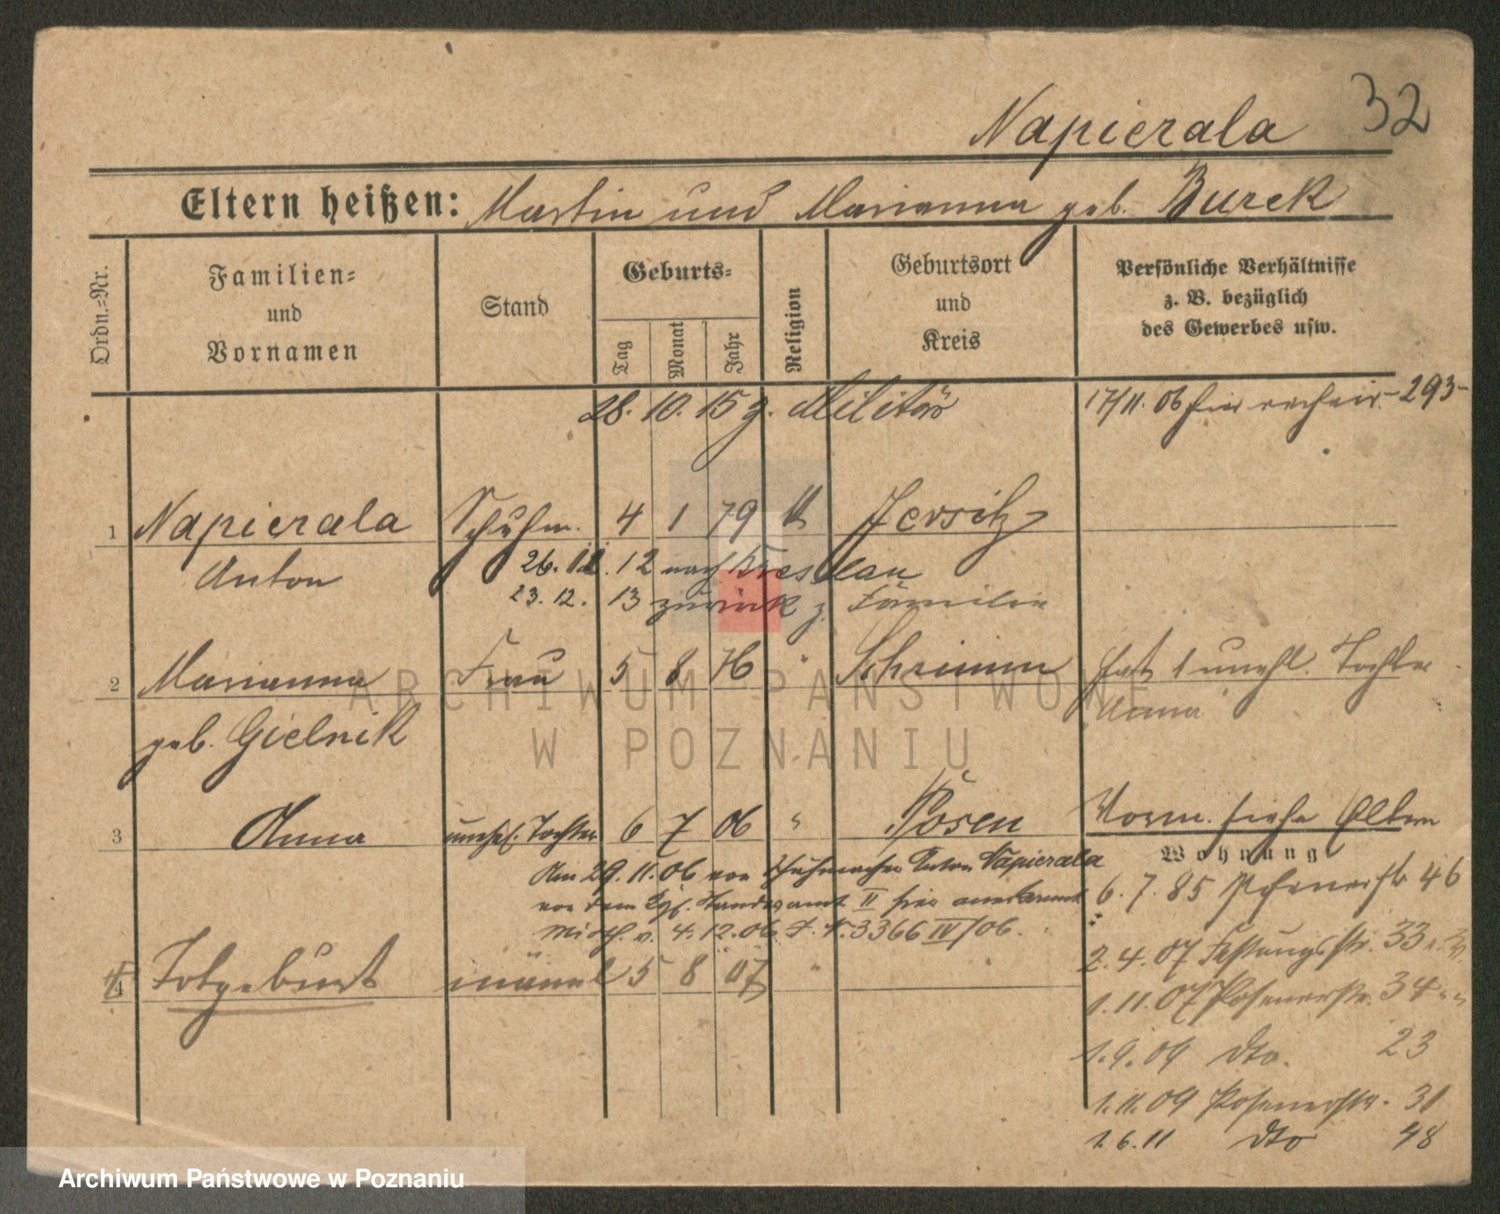 32
Napierala
Eltern heißen: Martin und Marianna geb. Burek
Ordn.-Nr.
Familien-
und
Vornamen
Stand
Geburts-
Tag
Monat
Jahr
Religion
Geburtsort
und
Kreis
Persönliche Verhältnisse
z. B. bezüglich
des Gewerbes usw.
28. 10. 15 z. Militär
17/11. 06 hier 293-
1 Napierala Schuhm. 4 1 79 K Jersitz
Anton 26. 12. 12 nach Breslau
23. 12. 13 zurück z. Familie
2 Marianna Frau 5 8 76 " Schrimm hat 1 unehl. Tochter
Anna
geb. Gielnik
3 Anna unehl. Tochter 6 7 06 " Posen Vorm. siehe Eltern
Wohnung
Am 29. 11. 06 von Schuhmacher Anton Napierala
vor dem Kgl. Standesamt II hier anerkannt
v. 4. 12. 06 J. N. 3366 IV/06.
4 Totgeburt männl 5 8 07 "
6. 7. 85 46
2. 4. 07 Festungsstr. 33
1. 11. 07 Posenerstr. 34
1. 9. 09 dto. 23
1. 11. 09 Posenerstr. 31
1. 6. 11 dto 48
ARCHIWUM PAŃSTWOWE
W POZNANIU
Archiwum Państwowe w Poznaniu